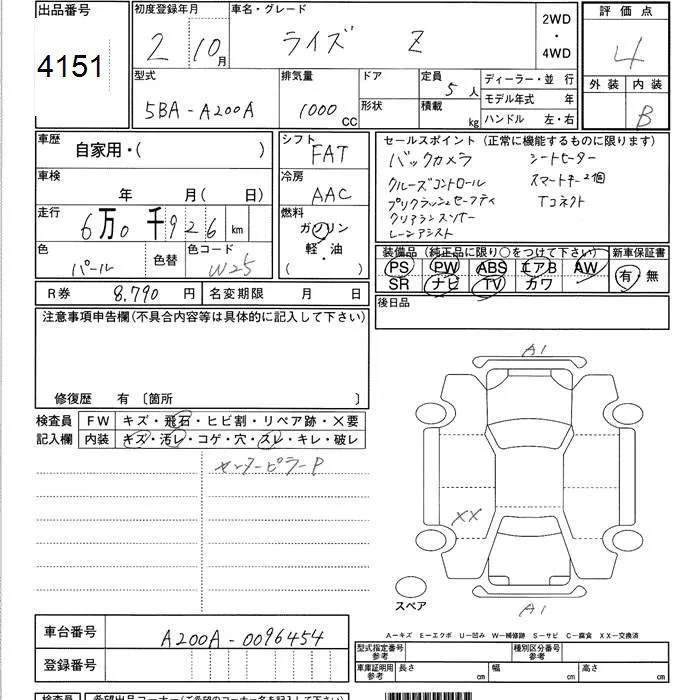 出品番号 初度登録年月 車名・グレード 2WD・4WD 評価点
4151 2 10月 ライズ Z 4
外装 内装 B
型式 排気量 ドア 定員 5人 ディーラー・並 行
5BA-A200A 1000cc 形状 積載 kg モデル年式 年
ハンドル 左・右
車歴 自家用・( )
シフト FAT
セールスポイント (正常に機能するものに限ります)
バックカメラ シートヒーター
クルーズコントロール スマートキー2個
プリクラッシュセーフティ Tコネクト
クリアランスソナー
レーンアシスト
車検 年 月( 日)
冷房 AAC
走行 6万0千926km
燃料 ガソリン
軽・油
( )
色 パール 色替 色コード W25
装備品 (純正品に限り○をつけて下さい) 新車保証書
PS PW ABS エアB AW 有 無
SR ナビ TV カワ
R券 8,790円 名変期限 月 日
後日品
注意事項申告欄(不具合内容等は具体的に記入して下さい)
修復歴 有 〔箇所 〕
検査員 FW キズ・飛石・ヒビ割・リペア跡・×要
記入欄 内装 キズ・汚レ・コゲ・穴・スレ・キレ・破レ
センターピラーP
A1
XX
A1
スペア
車台番号 A200A-0096454
登録番号
A－キズ E－エクボ U－凹み W－補修跡 S－サビ C－腐食 XX－交換済
型式指定番号 参考 種別区分番号 参考
車庫証明用 参考 長さ cm 幅 cm 高さ cm
検査員 希望出品コーナー(ご希望のコーナー名を記入して下さい)